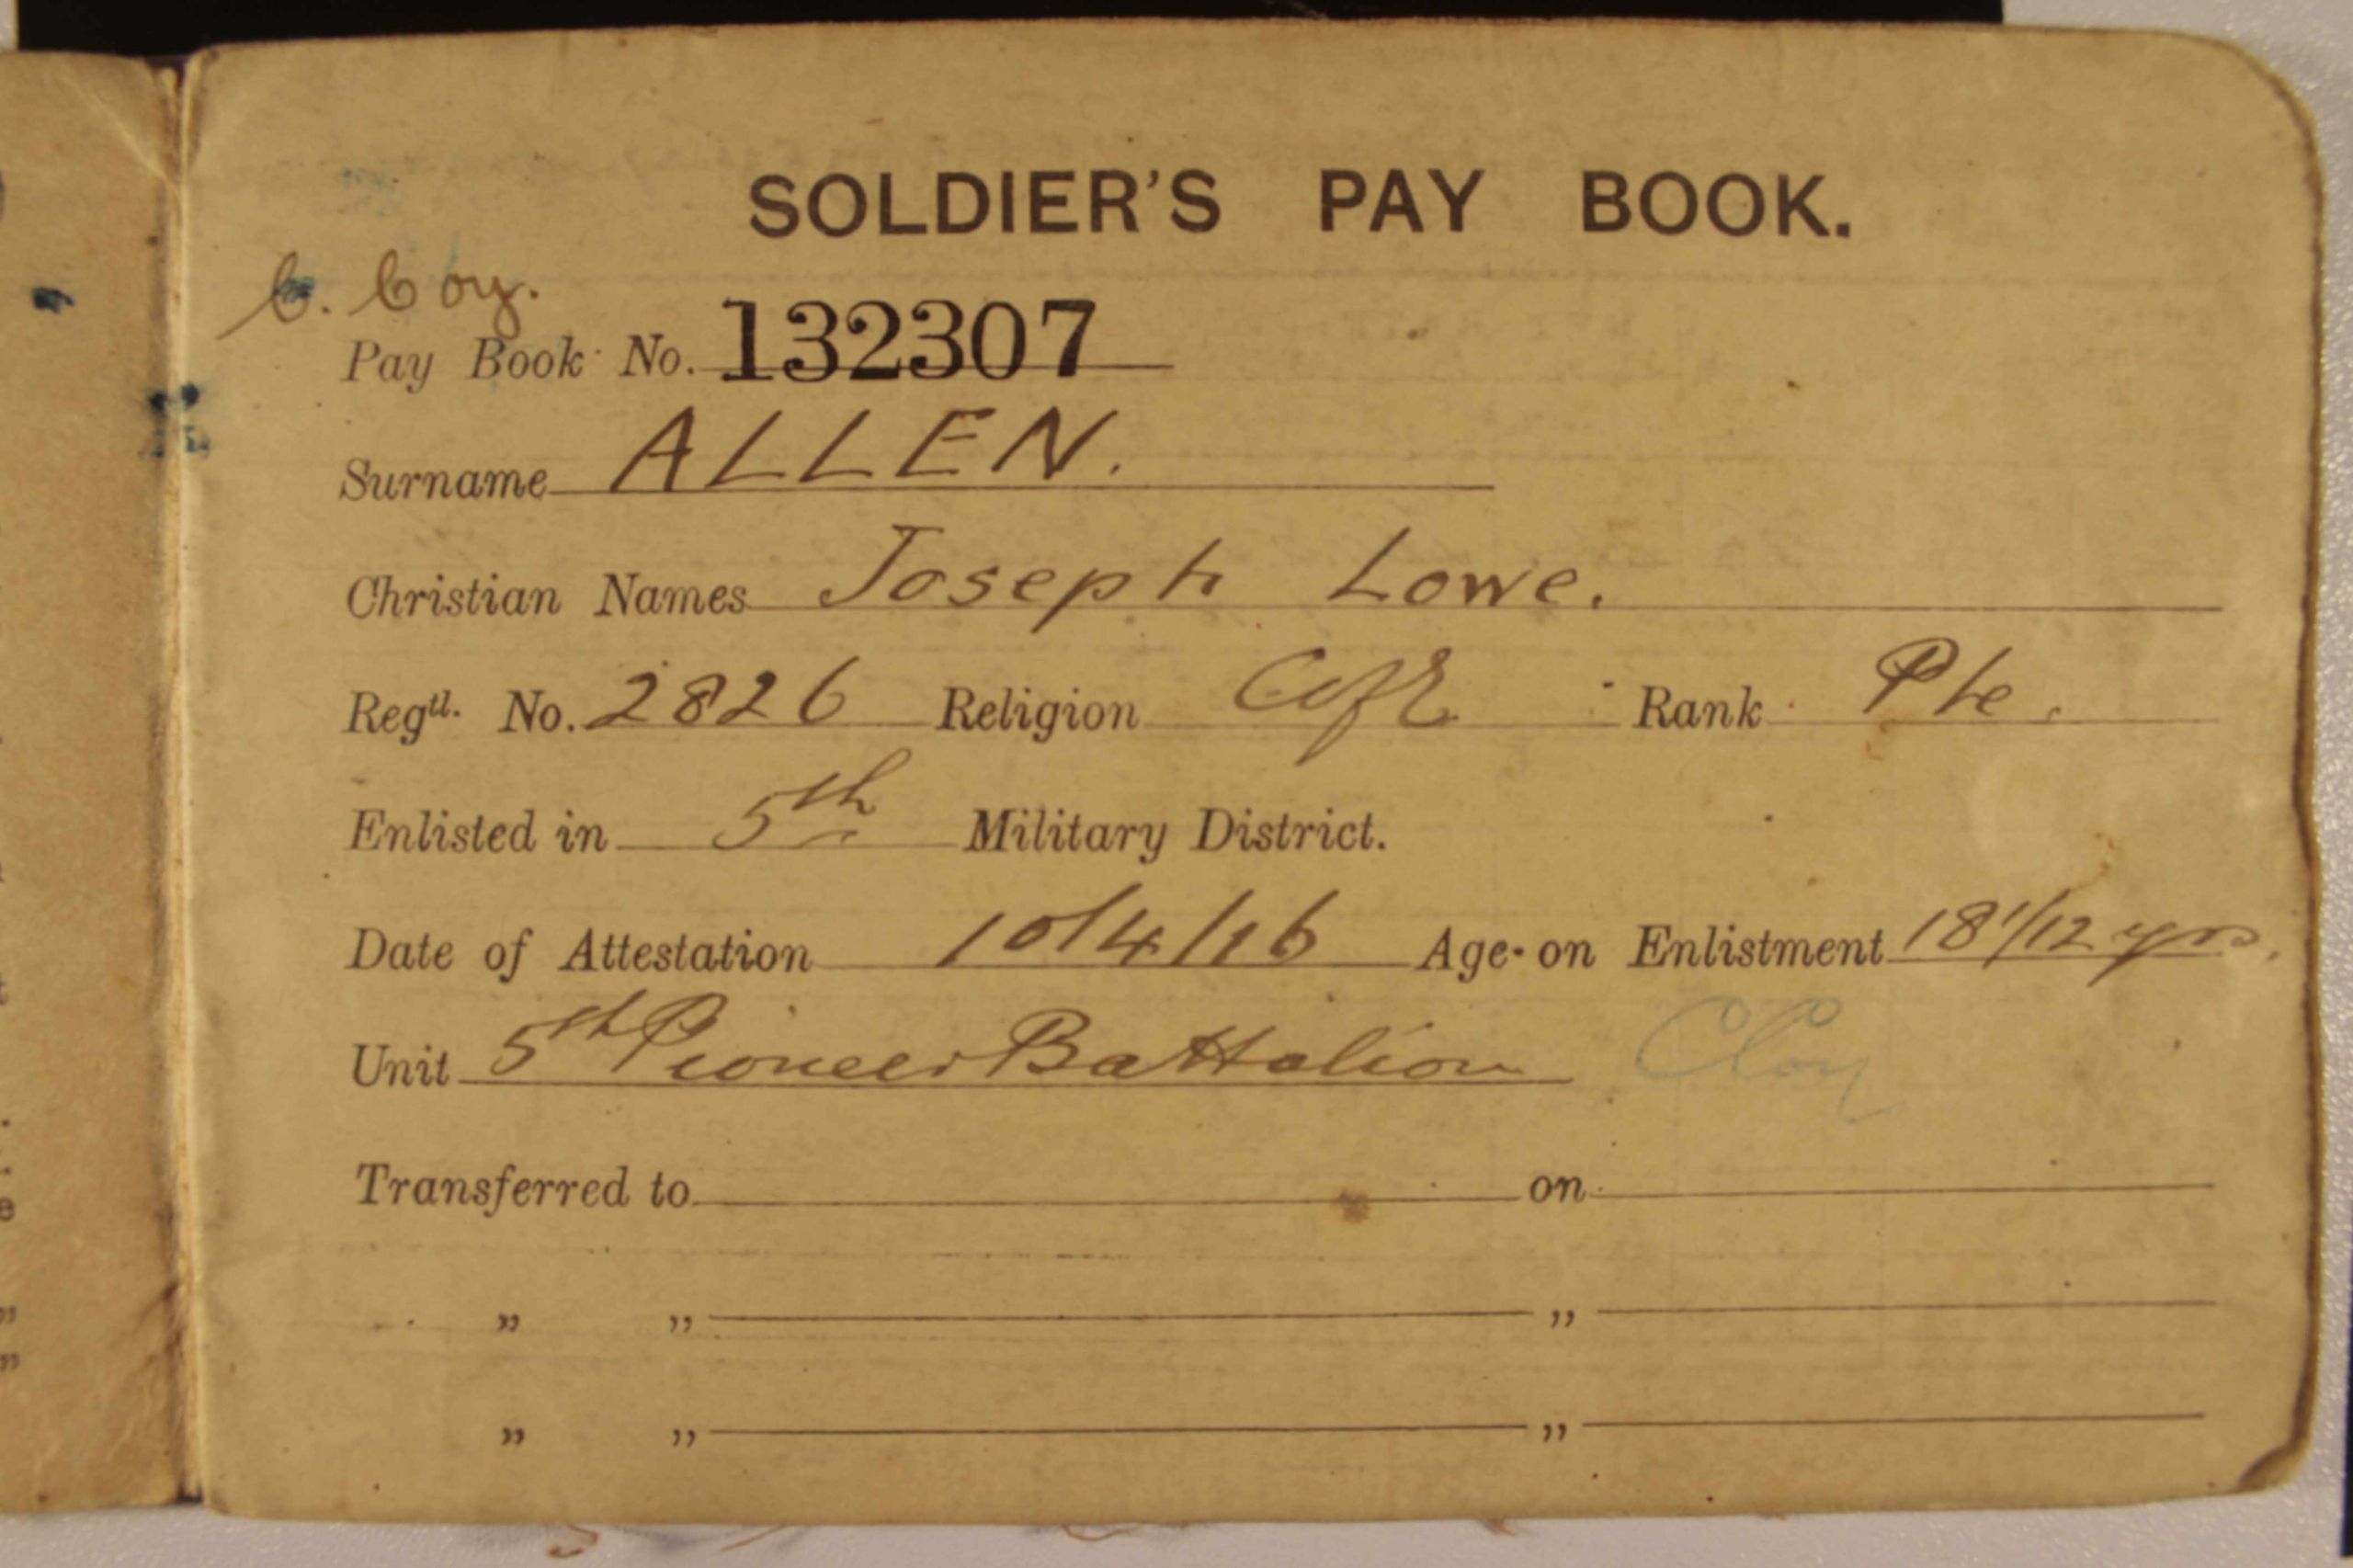 SOLDIER'S PAY BOOK.
C. Coy.
Pay Book No. 132307
Surname ALLEN.
Christian Names Joseph Lowe.
Regtl. No. 2826 Religion CofE Rank Pte.
Enlisted in 5th Military District.
Date of Attestation 10/4/16 Age on Enlistment 18 1/12 yrs.
Unit 5th Pioneer Battalion C Coy
Transferred to on
„ „ „
„ „ „